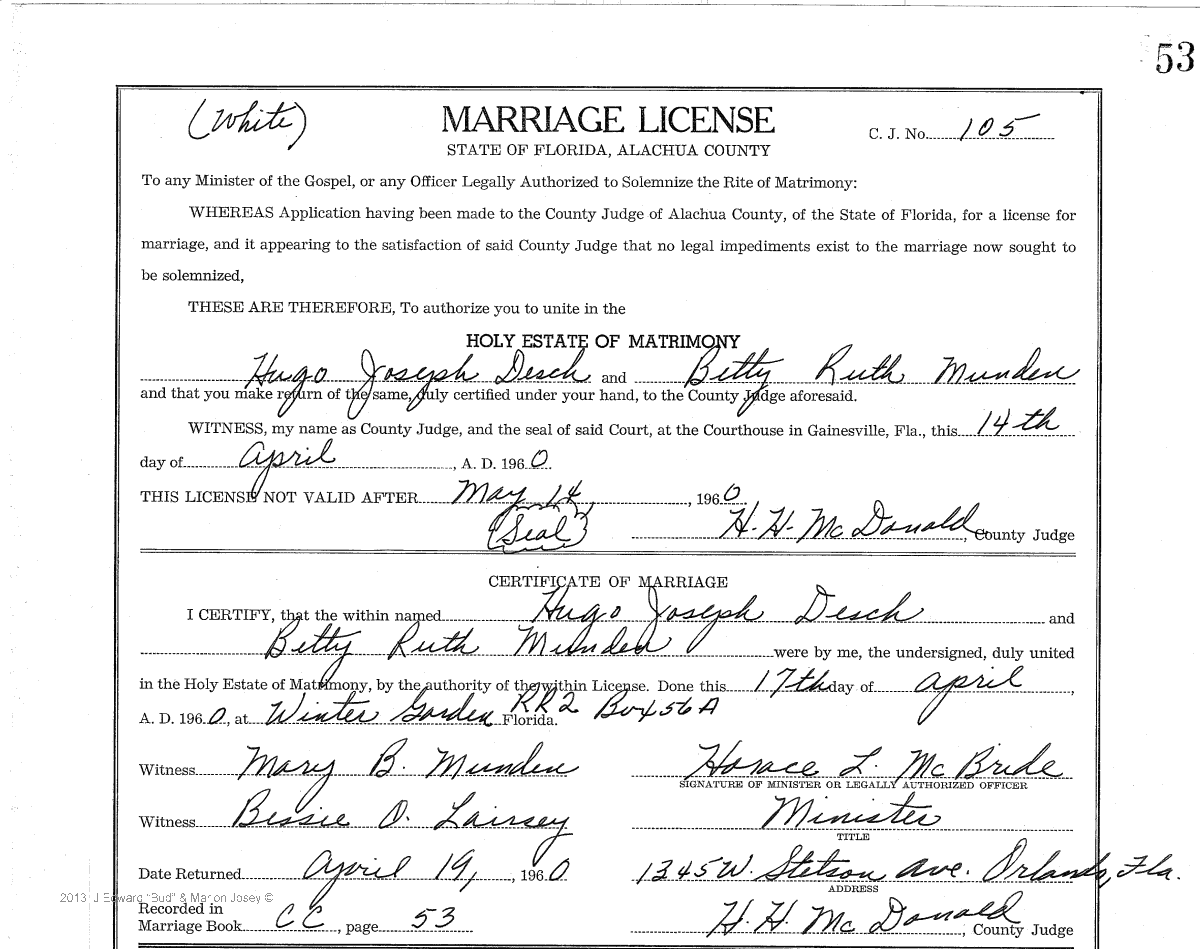 53
(White)
MARRIAGE LICENSE
C. J. No. 105
STATE OF FLORIDA, ALACHUA COUNTY
To any Minister of the Gospel, or any Officer Legally Authorized to Solemnize the Rite of Matrimony:
WHEREAS Application having been made to the County Judge of Alachua County, of the State of Florida, for a license for
marriage, and it appearing to the satisfaction of said County Judge that no legal impediments exist to the marriage now sought to
be solemnized,
THESE ARE THEREFORE, To authorize you to unite in the
HOLY ESTATE OF MATRIMONY
Hugo Joseph Desch and Betty Ruth Munden
and that you make return of the same, duly certified under your hand, to the County Judge aforesaid.
WITNESS, my name as County Judge, and the seal of said Court, at the Courthouse in Gainesville, Fla., this 14th
day of April, A. D. 1960.
THIS LICENSE NOT VALID AFTER May 14, 1960
(Seal) H. H. McDonald, County Judge
CERTIFICATE OF MARRIAGE
I CERTIFY, that the within named Hugo Joseph Desch and
Betty Ruth Munden were by me, the undersigned, duly united
in the Holy Estate of Matrimony, by the authority of the within License. Done this 17th day of April,
A. D. 1960, at Winter Garden RR2 Box 456A Florida.
Witness Mary B. Munden Horace L. McBride
SIGNATURE OF MINISTER OR LEGALLY AUTHORIZED OFFICER
Witness Bessie O. Lairsey Minister
TITLE
Date Returned April 19, 1960 1345 W. Stetson Ave. Orlando, Fla.
ADDRESS
2013 J Edward "Bud" & Marion Josey ©
Recorded in
Marriage Book CC, page 53 H. H. McDonald, County Judge